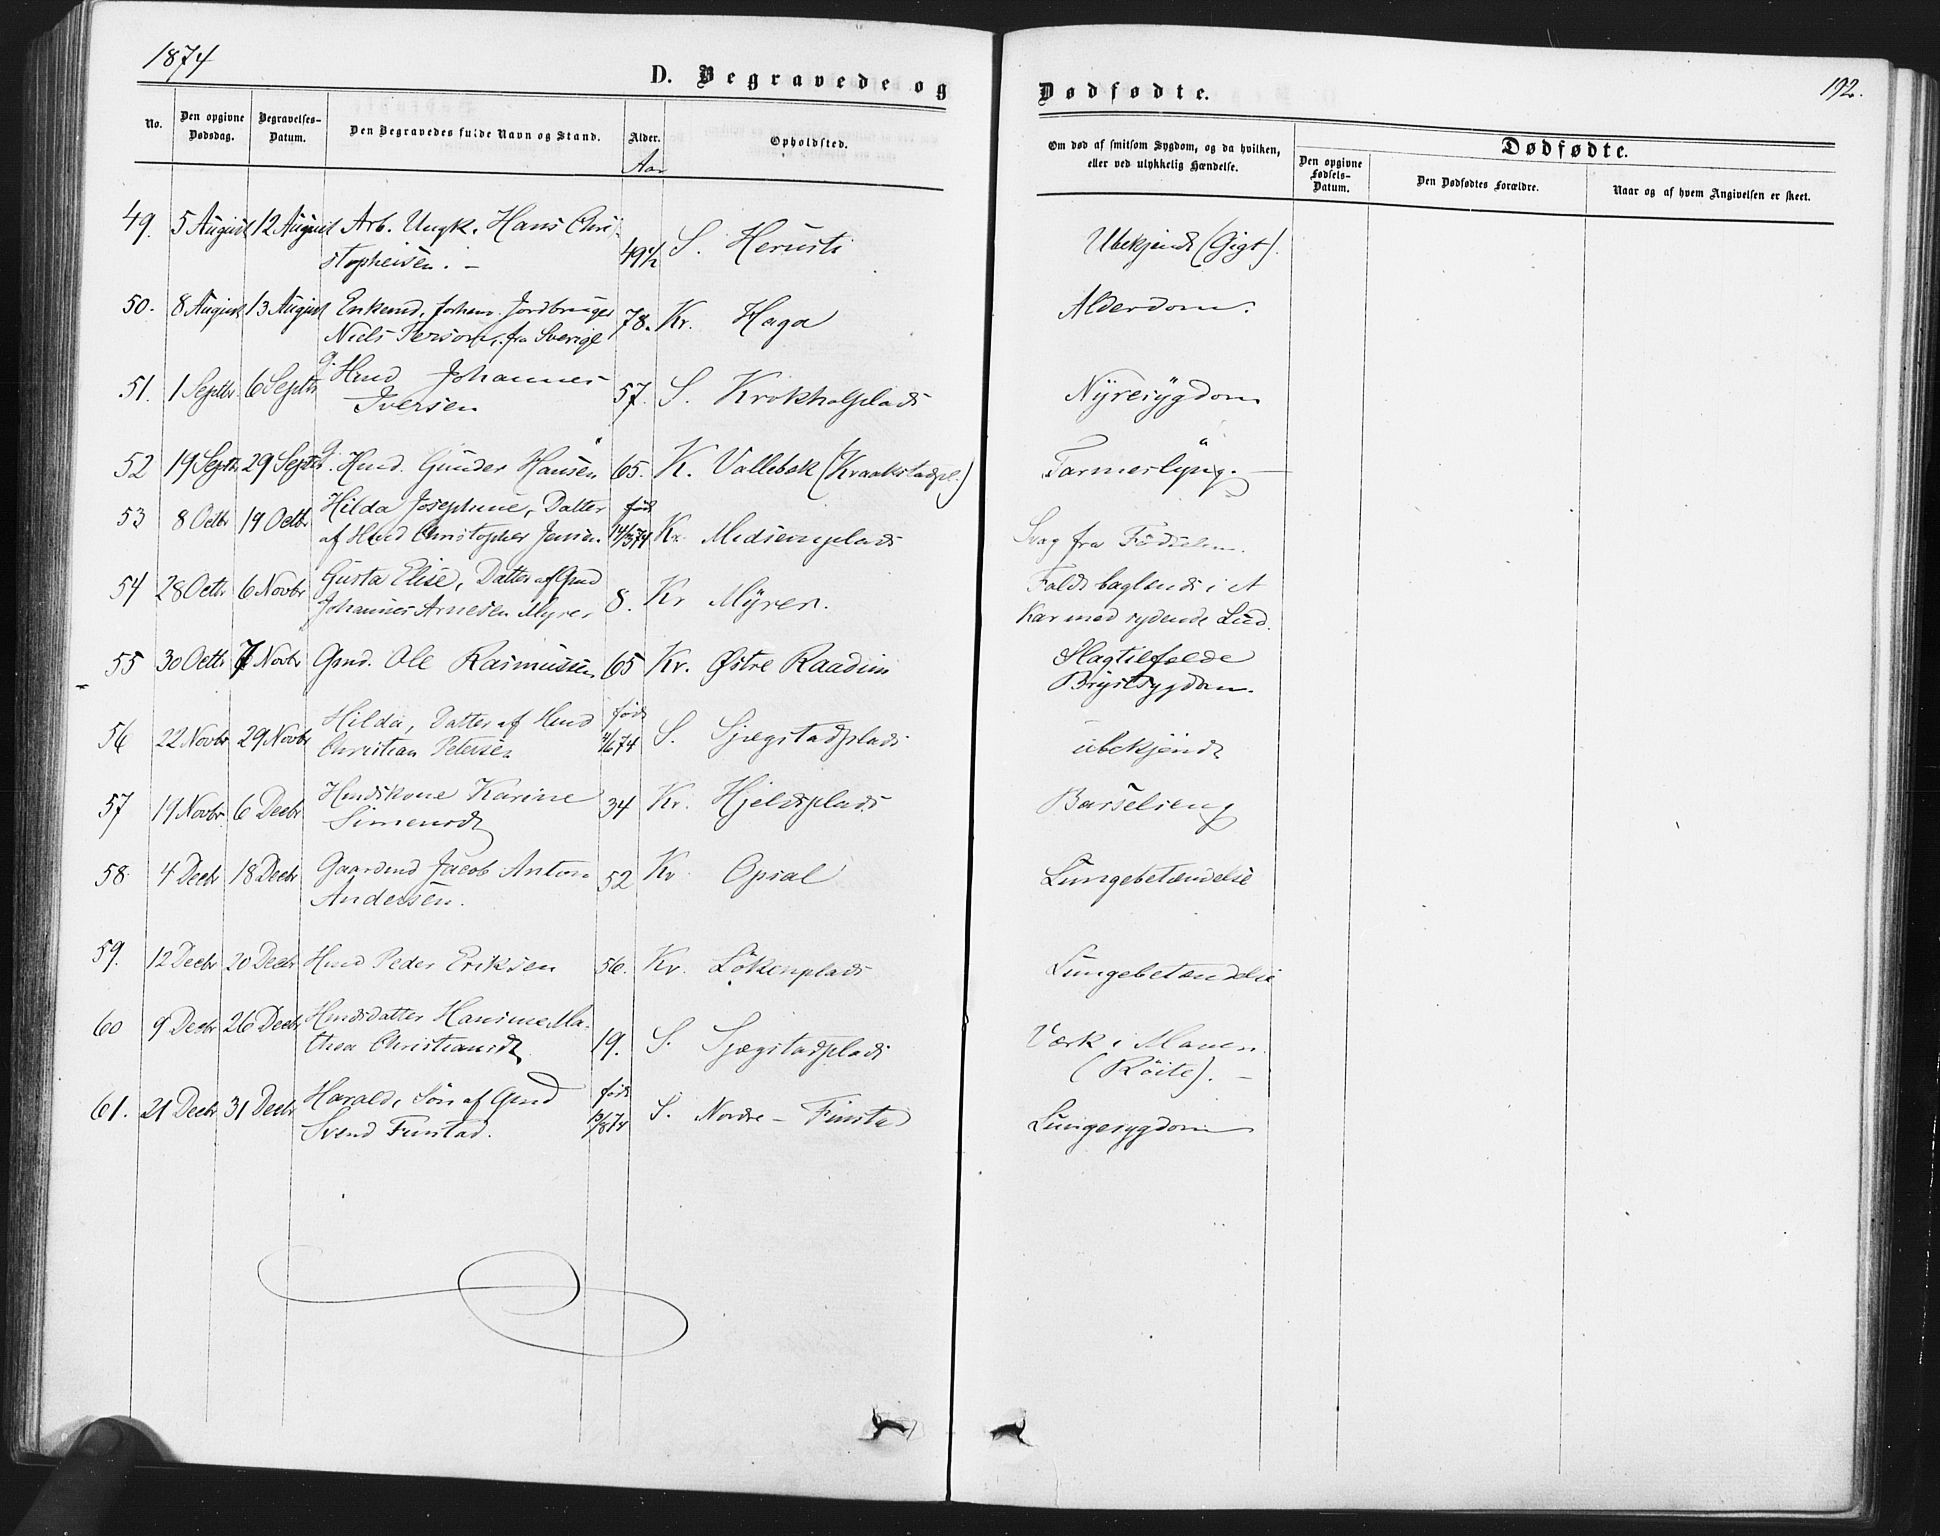 1874
D. Begravede og Dødfødte. 192.
No. Den opgivne Dødsdag. Begravelses-Datum. Den Begravedes fulde Navn og Stand. Alder. Opholdsted. Om død af smitsom Sygdom, og da hvilken, eller ved ulykkelig Hændelse. Dødfødte.
Den opgivne Fødsels-Datum. Den Dødfødtes Forældre. Naar og af hvem Angivelsen er skeet.
Aar
49. 5 August 12 August Arb. Ungk. Hans Chri-
stophersen. 49½ S. Ubekjendt (Gigt).
50. 8 August 13 August Enkemd, Jordbruger 78. Kr. Haga Alderdom.
Niels Person, fra Sverige
51. 1 Septbr 6 Septbr Hmd Johannes
Iversen 57. S. Krokholplads Nyresygdom
52 19 Septb 29 Septb Hmd. Gunder Hansen 65. K. Vallebæk (Kraakstadpl.)
53 8 Octbr 19 Octbr Hilda Josephine, Datter
af Hmd Christopher Jensen. født 14/3 74 Kr. Svag fra Fødselen.
54 28 Octb 6 Novbr Gusta Elise, Datter af Gmd
Johannes Arnesen Myrer 8. Kr Myrer. Faldt baglends i et
Kar med sydende Lud.
55 30 Octb 7 Novbr Gmd. Ole Rasmussen 65 Kr. Østre Raadim Slagtilfælde
Brystsygdom.
56 22 Novbr 29 Novbr Hilda, Datter af Hmd
Christian Petersen født 4/6 74 S. Sjægstadplads ubekjendt
57 19 Novbr 6 Decbr Hmdskone Karine
Simensdt 34 Kr. Hjeldsplads Barselseng
58. 4 Decbr 18 Decbr Gaardmd Jacob Anton
Andersen. 52 Kr Opsal Lungebetændelse
59. 12 Decbr 20 Decbr Hmd Peder Eriksen 56. Kr. Løkenplads Lungebetændelse
60 9 Decbr 26 Decbr Hmdsdatter Hansine Ma-
thea Christiansdt 19. S. Sjægstadplads Værk i Maven.
61. 21 Decbr 31 Decbr Harald, Søn af Gmd
Svend Finstad. født 13/8 74 S. Nordre-Finstad Lungesygdom